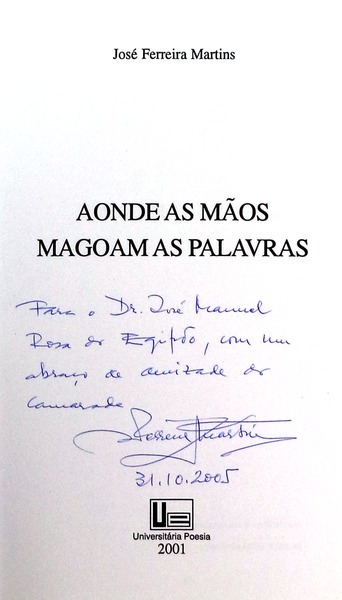 José Ferreira Martins
AONDE AS MÃOS
MAGOAM AS PALAVRAS
Para o Dr. José Manuel
Rosa do Egipto, com um
abraço de amizade do
camarada
Ferreira Martins
31.10.2005
UE
Universitária Poesia
2001